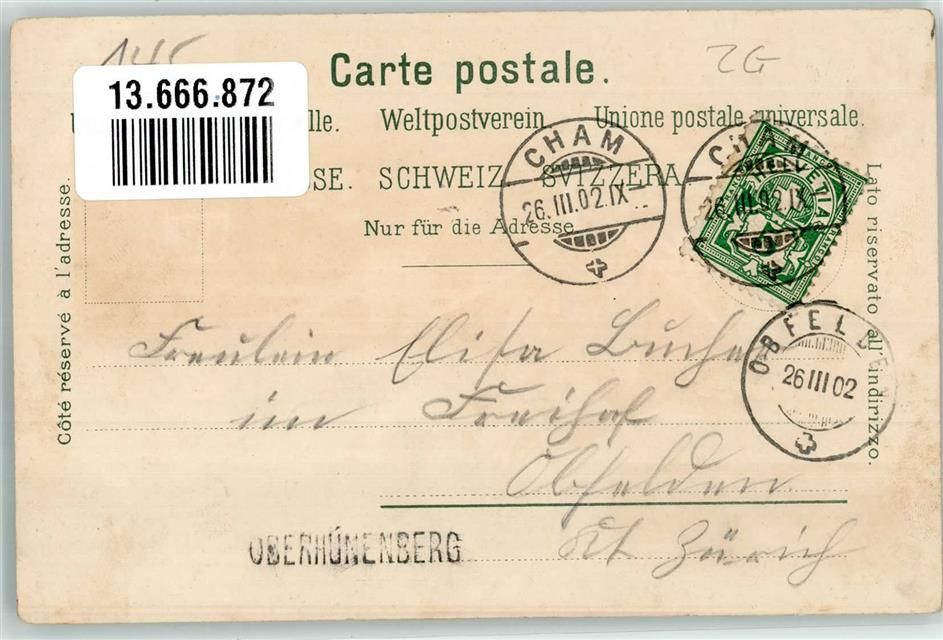 145
ZG
Carte postale.
13.666.872
lle. Weltpostverein Unione postale universale.
SSE. SCHWEIZ SVIZZERA
Nur für die Adresse
Côté réservé à l'adresse.
Lato riservato all' indirizzo.
CHAM
26.III.02.IX
CHAM
26.III.02.IX
HELVETIA
OBFELDEN
26 III 02
Fräulein Elisa Bucher
im Freihof
Obfelden
Kt Zürich
OBERHÜNENBERG